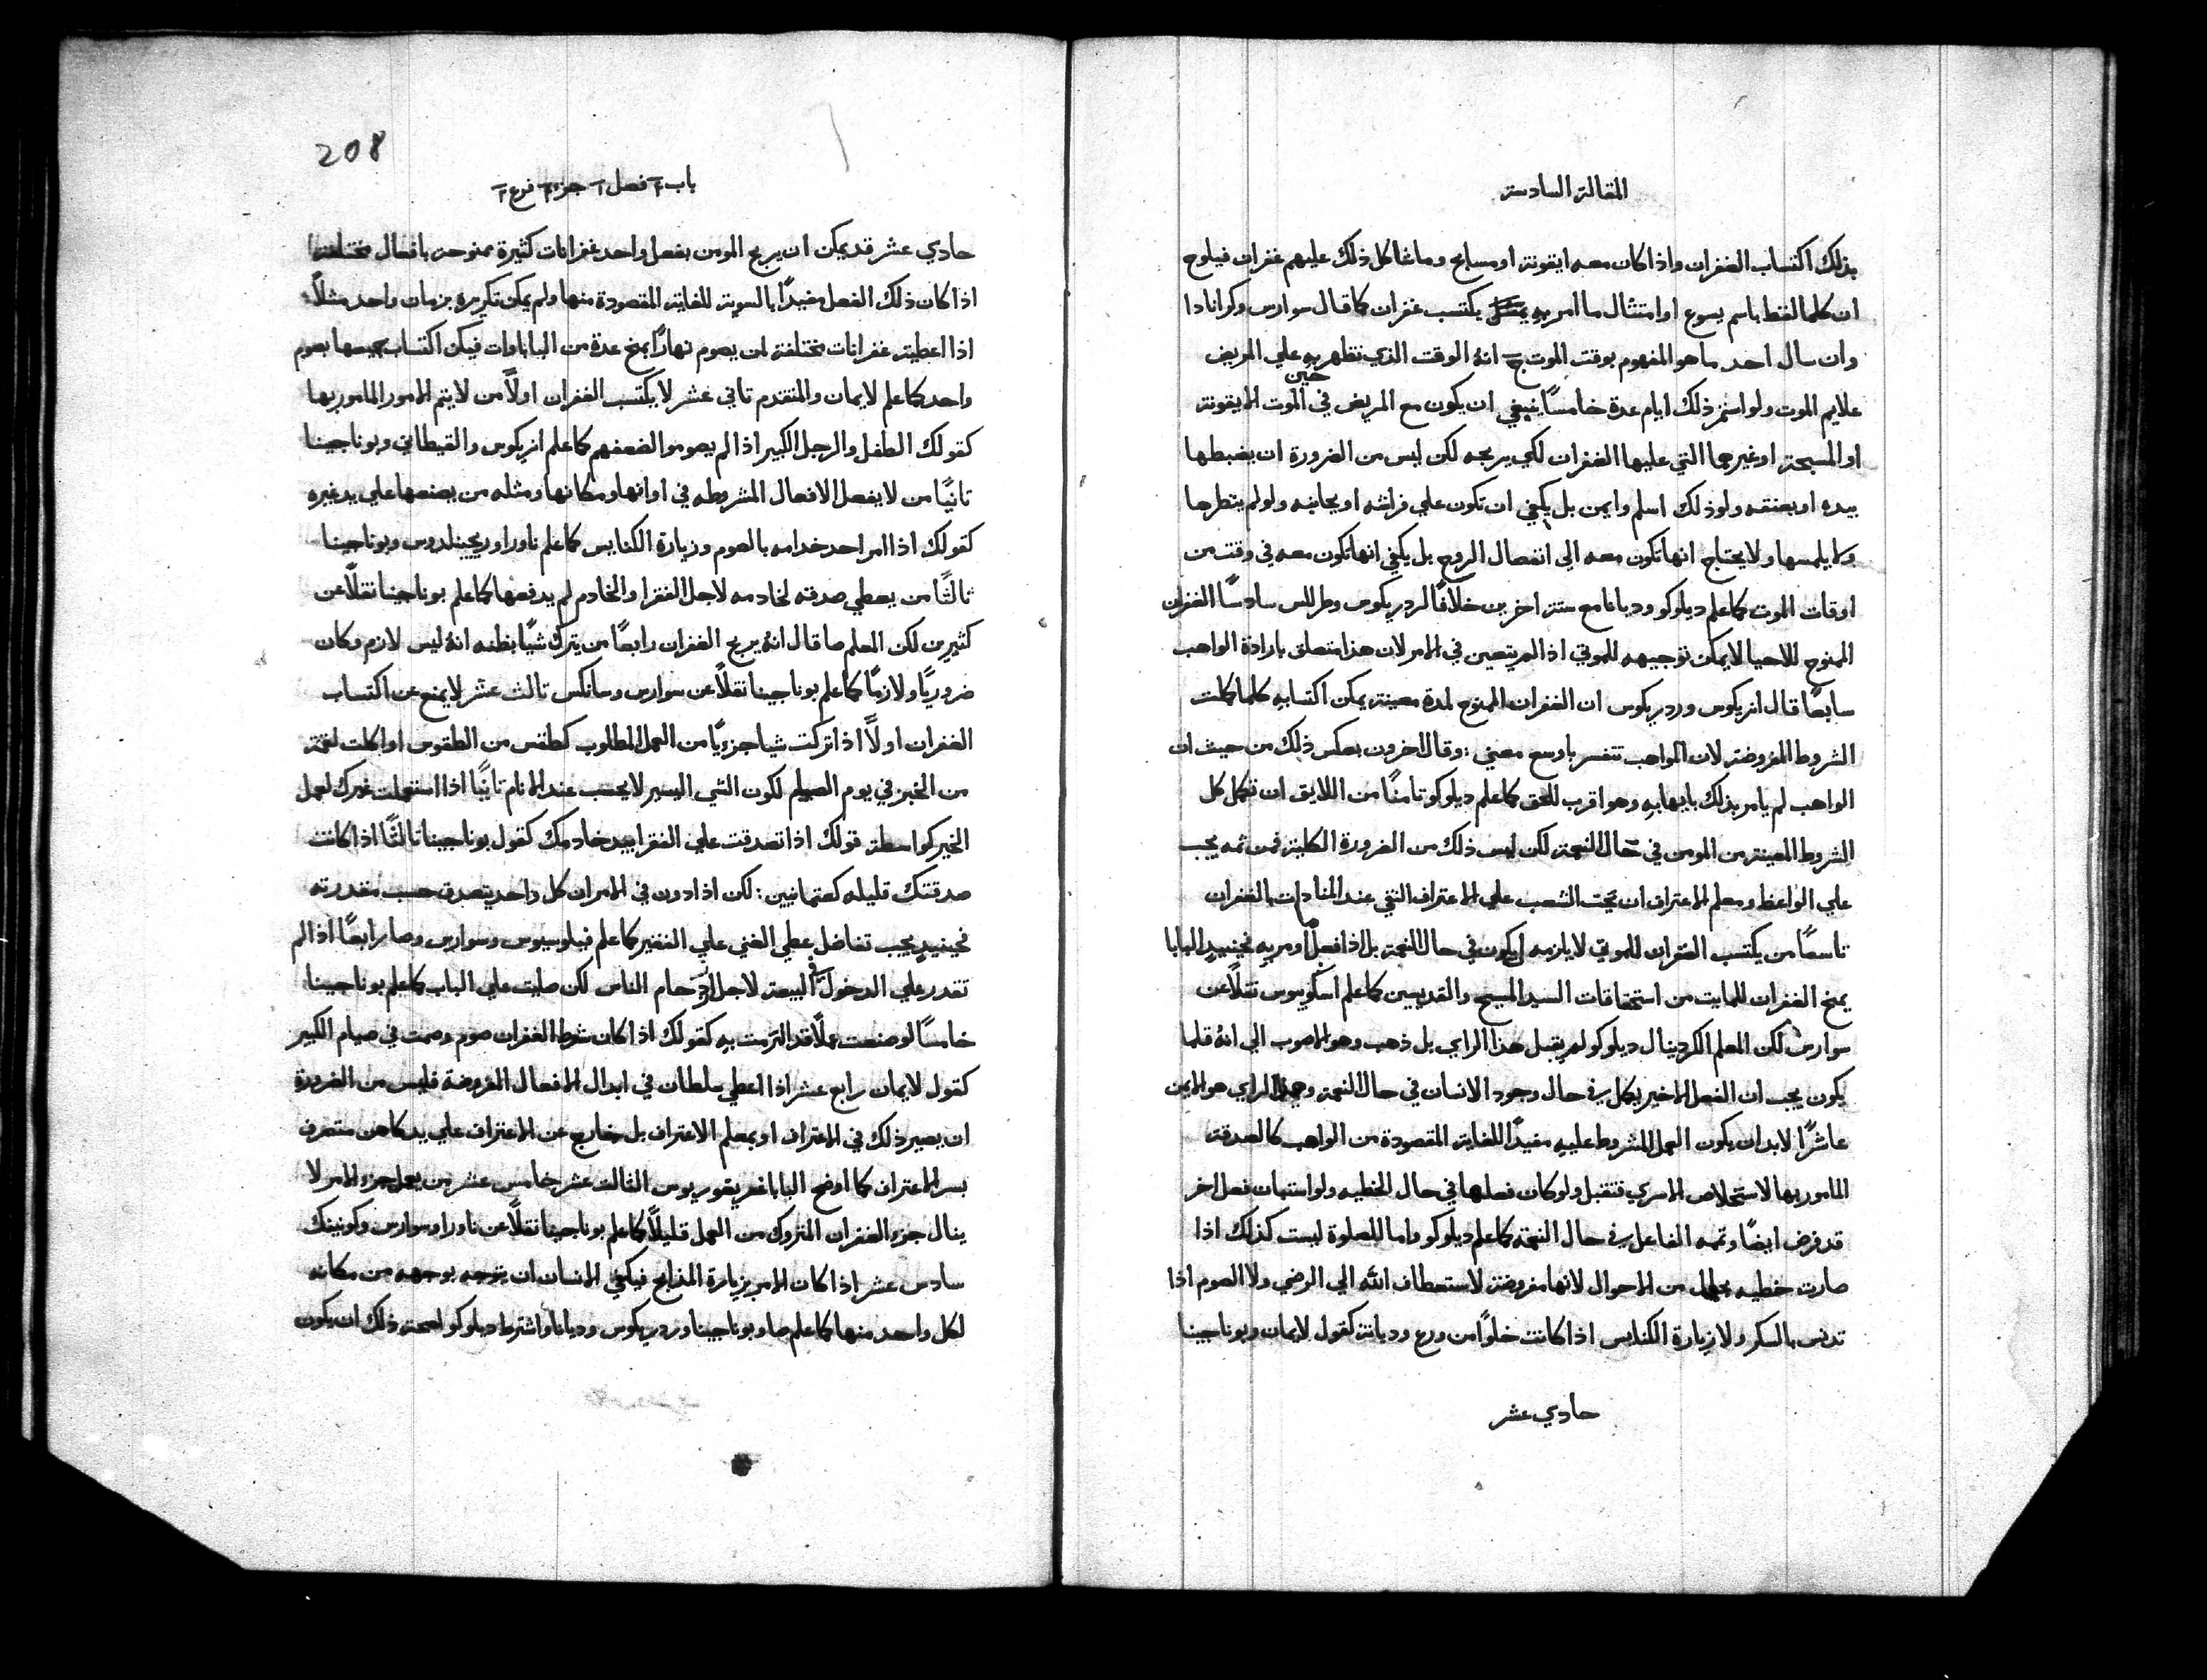 المقالة السادسة
بذلك اكتساب الغفران واذا كان معه ايقونة او مسابح وما شاكل ذلك عليهم غفران فيلوح
ان كلما لفظ باسم يسوع او امتثال ما امر به يكتسب غفران كما قال سوارس وكوانادا
وان سال احد ما هو المفهوم بوقت الموت ج انه الوقت الذي تظهر به علي المريض
علايم الموت ولو استمر ذلك ايام عدة خامسًا ينبغي ان يكون مع المريض في حين الموت الايقونة
او المسبحة او غيرهما التي عليها الغفران لكي يربحه لكن ليس من الضرورة ان يضبطها
بيده او بعنقه ولو ذلك اسلم وايمن بل يكفي ان تكون علي فراشه او بجانبه ولو لم ينظرها
ولا يلمسها ولا يحتاج انها تكون معه الي انفصال الروح بل يكفي انها تكون معه في وقت من
اوقات الموت كما علم ديلوكو وديانا مع ستة اخرين خلافًا لردريكوس وطرللس سادسًا الغفران
الممنوح للاحيا لا يمكن توجيهه للموتي اذا لم يتعين في الامر لان هذا متعلق بارادة الواهب
سابعًا قال انريكوس وردريكوس ان الغفران الممنوح لمدة معينة يمكن اكتسابه كلما كملت
الشروط المفروضة لان المواهب تتفسر باوسع معني : وقال اخرون بعكس ذلك من حيث ان
الواهب لم يامر بذلك بايهابه وهو اقرب للحق كما علم ديلوكو ثامنًا من اللايق ان تكمل كل
الشروط المعينة من المومن في حال النعمة لكن ليس ذلك من الضرورة الكلية فمن ثمه يجب
علي الواعظ ومعلم الاعتراف ان يحث الشعب علي الاعتراف النقي عند المنادات بالغفران
تاسعًا من يكتسب الغفران للموتي لا يلزمه ان يكون في حال النعمة بل اذا فعل ما اومر به فحينيذٍ البابا
يمنح الغفران للمايت من استحقاقات السيد المسيح والقديسين كما علم اسكوبوس نقلًا عن
سوارس لكن المعلم الكردينال ديلوكو لم يقبل هذا الراي بل ذهب وهو الاصوب الي انه قلما
يكون يجب ان الفعل الاخير يكمل في حال وجود الانسان في حال النعمة وهذا الراي هو الايمن
عاشرًا لابد ان يكون العمل المشروط عليه مفيدًا للغاية المقصودة من الواهب كالصدقة
المامور بها لاستخلاص الاسري فتقبل ولو كان فعلها في حال الخطيه ولو استبان فعل اخر
قد فرض ايضًا وتممه الفاعل في حال النعمة كما علم ديلوكو واما للصلوة ليست كذلك اذا
صارت خطيه من الاحوال لانها مفروضة لاستعطاف الله الي الرضي ولا الصوم اذا
تدنس بالسكر ولا زيارة الكنايس اذا كانت خلوًا من ورع وديانة كقول لايمان وبوناجينا
حادي عشر
208
باب فصل جزء فرع
حادي عشر قد يمكن ان يربح المومن بفعل واحد غفرانات كثيرة ممنوحة بافعال مختلفة
اذا كان ذلك الفعل مفيدًا بالسوية للغاية المقصودة منها ولم يمكن تكريره بزمان واحد مثلًا
اذا اعطيت غفرانات مختلفة لمن يصوم نهارًا بمنح عدة من الباباوات فيمكن اكتساب جميعها بصوم
واحد كما علم لايمان والمتقدم ثاني عشر لا يكتسب الغفران اولًا من لا يتم الامور المامور بها
كقولك الطفل والرجل الكبير اذا لم يصوموا لضعفهم كما علم انريكوس والقيطاني وبوناجينا
ثانيًا من لا يفعل الافعال المشروطه في اوانها ومكانها ومثله من يصنعها علي يد غيره
كقولك اذا امر احد خدامه بالصوم وزيارة الكنايس كما علم ناورا وريجينلدوس وبوناجينا
ثالثًا من يعطي صدقه لخادمه لاجل الفقرا والخادم لم يدفعها كما علم بوناجينا نقلًا عن
كثيرين لكن المعلم صا قال انه يربح الغفران رابعًا من يترك شيًا بظنه انه ليس لازم وكان
ضروريًا ولازمًا كما علم بوناجينا نقلًا عن سوارس وسانكس ثالث عشر لا يمنع عن اكتساب
الغفران اولًا اذا تركت شيا جزويًا من العمل المطلوب كطقس من الطقوس او اكلت لقمة
من الخبز في يوم الصيام لكون الشي اليسير لا يحسب عند الانام ثانيًا اذا استعملت غيرك لعمل
الخير كواسطة قولك اذا تصدقت علي الفقرا بيد خادمك كقول بوناجينا ثالثًا اذا كانت
صدقتك قليله كعتمانيين : لكن اذا ادون في الامر ان كل واحد يتصدق حسب مقدرته
فحينيذٍ يجب تفاضل عطي الغني علي الفقير كما علم فيلوسيوس وسوارس وصا رابعًا اذا لم
تقدر علي الدخول في البيعة لاجل ازدحام الناس لكن صليت علي الباب كما علم بوناجينا
خامسًا لو صنعت عملًا قد التزمت به كقولك اذا كان شرط الغفران صوم وصمت في صيام الكبير
كقول لايمان رابع عشر اذا اعطي سلطان في ابدال الافعال المفروضة فليس من الضرورة
ان يصير ذلك في الاعتراف او بمعلم الاعتراف بل خارج عن الاعتراف علي يد كاهن متصرف
بسر الاعتراف كما اوضح البابا غريغوريوس الثالث عشر خامس عشر من يعمل جزء الامر لا
ينال جزء الغفران المتروك من العمل قليلًا كما علم بوناجينا نقلًا عن ناورا وسوارس وكونينك
سادس عشر اذا كان الامر بزيارة المذابح فيكفي الانسان ان يتوجه بوجهه من مكانه
لكل واحد منها كما علم صا وبوناجينا وردريكوس وديانا واشترط ديلوكو لصحة ذلك ان يكون